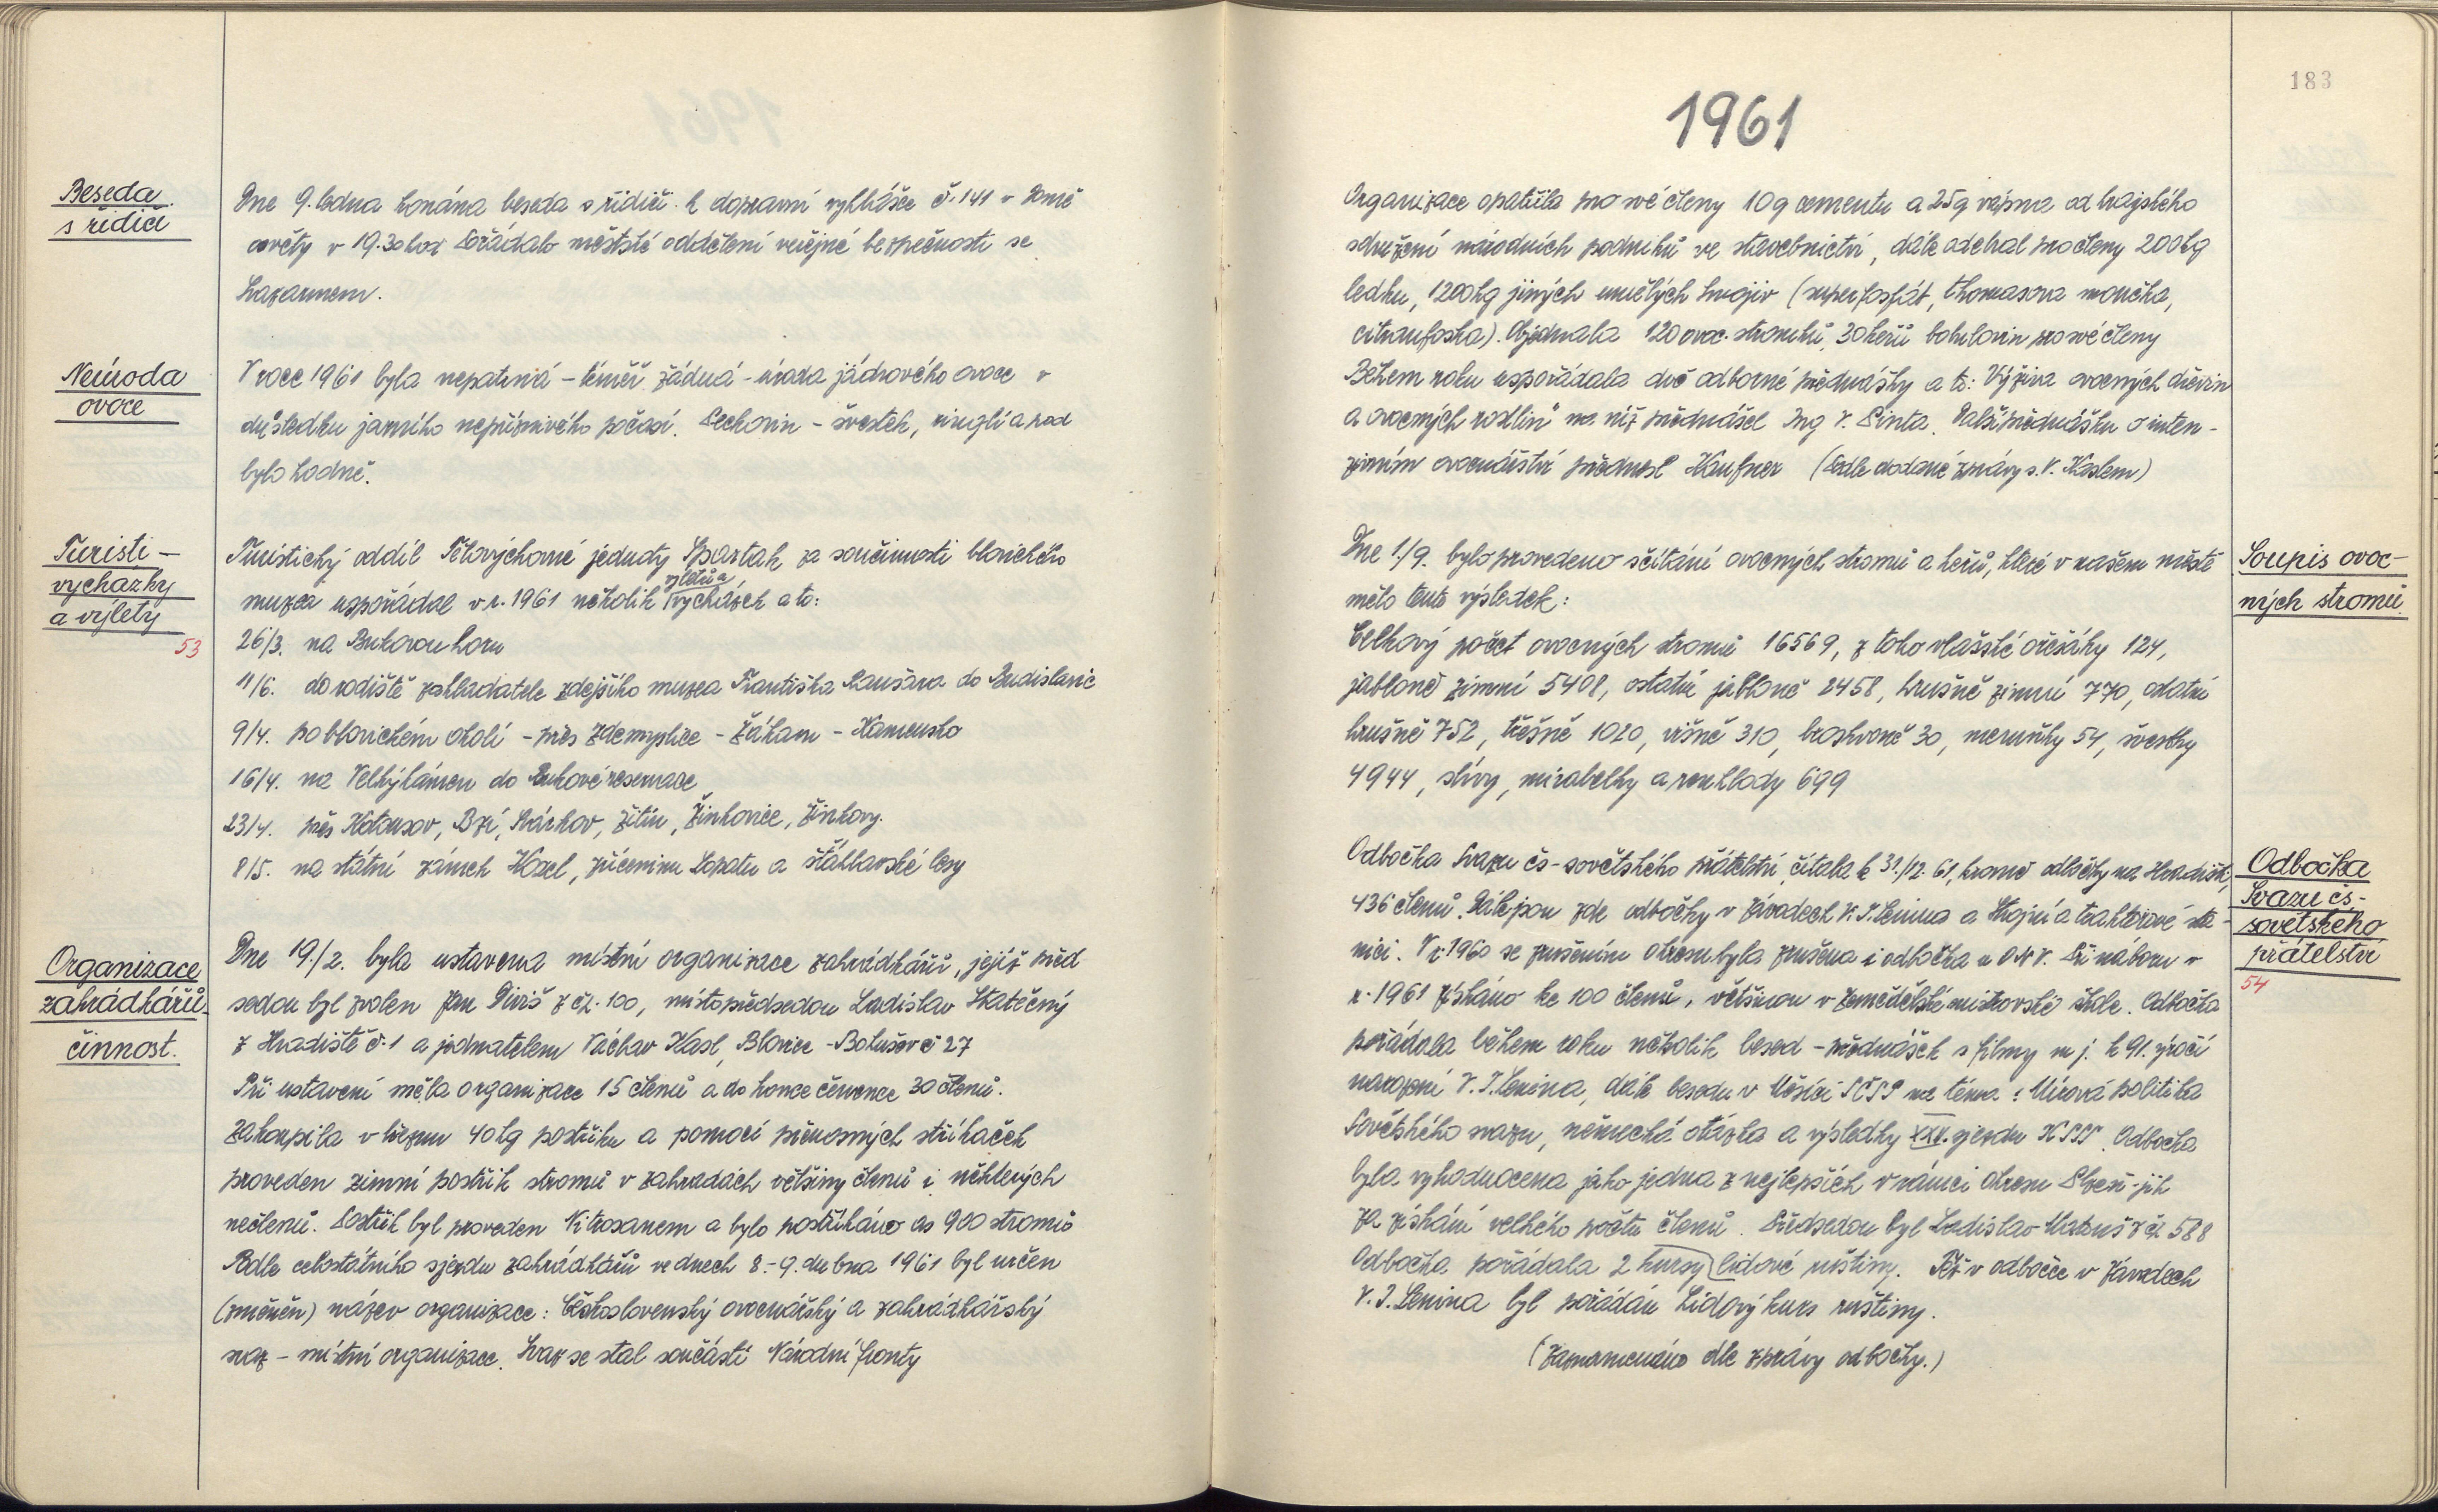 Beseda
s řidiči
Dne 9. ledna konána beseda s řidiči k dopravní vyhlášce č. 141 v Domě
osvěty v 19.30 hod Pořádalo městské oddělení veřejné bezpečnosti se
Svazarmem.
Neúroda
ovoce
V roce 1961 byla nepatrná - téměř žádná - úroda jádrového ovoce v
důsledku jarního nepříznivého počasí. Peckovin - švestek, ringlí a pod
bylo hodně.
Turisti -
vycházky
a výlety
53
Turistický oddíl Tělovýchovné jednoty Spartak za součinnosti blovického
výletů a
muzea uspořádal v r. 1961 několik vycházek a to:
26/3. na Bukovou horu
11/6. do rodiště zakladatele zdejšího muzea Františka Raušara do Budislavic
9/4. po blovickém okolí - přes Zdemyslice - Žákavu - Kamensko
16/4. na Velký kámen do Bukové reservace
23/4. přes Kotousov, Bzí, Míchov, Žitín, Žinkovice, Žinkovy.
8/5. na státní zámek Kozel, zříceninu Lopatu a šťáhlavské lesy
Organizace
zahrádkářů -
činnost.
Dne 19./2. byla ustavena místní organizace zahrádkářů, jejíž před
sedou byl zvolen Jan Diviš z čp. 100, místopředsedou Ladislav Statečný
z Hradiště č. 1 a jednatelem Václav Kasl, Blovice - Bohušov č 27
Při ustavení měla organizace 15 členů a do konce července 30 členů.
Zakoupila v březnu 40 kg postřiku a pomocí přenosných stříkaček
proveden zimní postřik stromů v zahradách většiny členů i některých
nečlenů. Postřik byl proveden Nitrosanem a bylo postříkáno as 900 stromů
Podle celostátního sjezdu zahrádkářů ve dnech 8.-9. dubna 1961 byl určen
(změněn) název organizace: Československý ovocnářský a zahrádkářský
svaz - místní organizace. Svaz se stal součástí Národní fronty
183
1961
Organizace opatřila pro své členy 10 q cementu a 25 q vápna od krajského
sdružení národních podniků ve stavebnictví, dále odebral pro členy 200 kg
ledku, 1200 kg jiných umělých hnojiv (superfosfát, thomasova moučka,
citramfoska). Objednala 120 ovoc. stromků, 30 keřů bobulovin pro své členy
Během roku uspořádala dvě odborné přednášky a to: Výživa ovocných dřevin
a ovocných rostlin" na níž přednášel Ing V. Šinta. Další přednášku o inten-
zivním ovocnářství přednesl Kaufner (Podle dodané zprávy s. V. Kaslem)
Soupis ovoc-
ných stromů
Dne 1./9. bylo provedeno sčítání ovocných stromů a keřů, které v našem městě
mělo tento výsledek:
Celkový počet ovocných stromů 16569, z toho vlašské ořešáky 124,
jabloně zimní 5408, ostatní jabloně 2458, hrušně zimní 770, ostatní
hrušně 752, třešně 1020, višně 310, broskvoně 30, meruňky 54, švestky
4944, slívy, mirabelky a renklady 699
Odbočka
Svazu čs-
sovětského
přátelství
54
Odbočka Svazu čs-sovětského přátelství, čítala k 31./12. 61, kromě odbočky na Hradišti,
436 členů. Dále jsou zde odbočky v Závodech V. I. Lenina a Strojní a traktorové sta-
nici. V r. 1960 se zrušením okresu byla zrušena i odbočka u ONV. Při náboru v
r. 1961 získáno ke 100 členů, většinou v Zemědělské mistrovské škole. Odbočka
pořádala během roku několik besed - přednášek s filmy m j. k 91. výročí
narození V. I. Lenina, dále besedu v Měsíci SČSP na téma: Mírová politika
Sovětského svazu, německá otázka a výsledky XXII. sjezdu KSSS. Odbočka
byla vyhodnocena jako jedna z nejlepších v rámci okresu Plzeň-jih
za získání velkého počtu členů. Předsedou byl Ladislav Matouš z čp. 588
Odbočka pořádala 2 kursy lidové ruštiny. Též v odbočce v Závodech
V. I. Lenina byl pořádán Lidový kurs ruštiny.
(Zaznamenáno dle zprávy odbočky.)